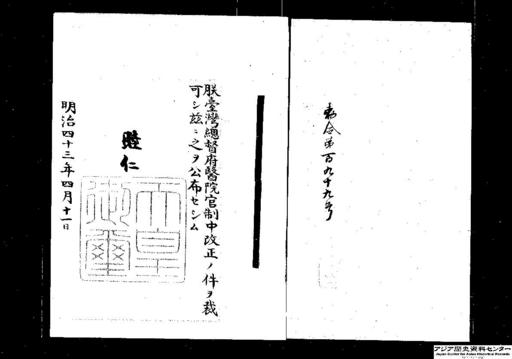 勅令第百九十九号
朕臺灣總督府醫院官制中改正ノ件ヲ裁
可シ茲ニ之ヲ公布セシム
睦仁
天皇御璽
明治四十三年四月十一日
アジア歴史資料センター
Japan Center for Asian Historical Records